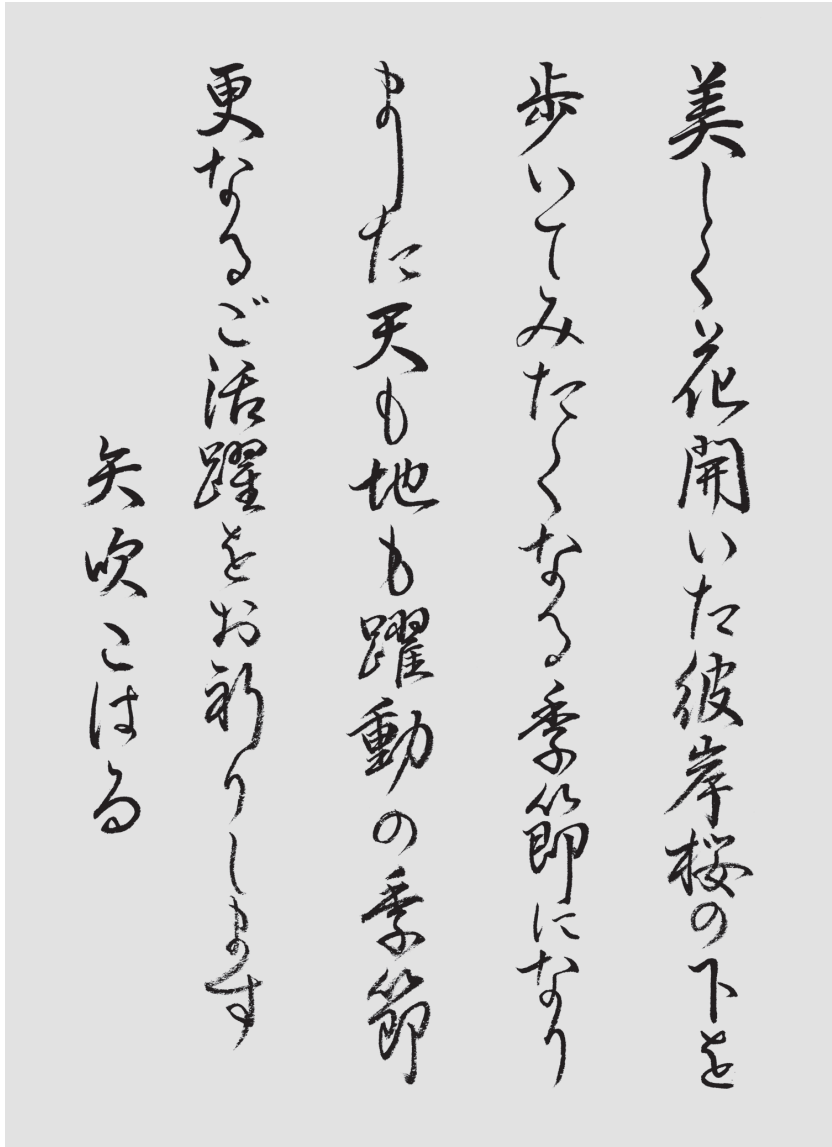 美しく花開いた彼岸桜の下を
歩いてみたくなる季節になり
ました天も地も躍動の季節
更なるご活躍をお祈りします
矢吹こはる